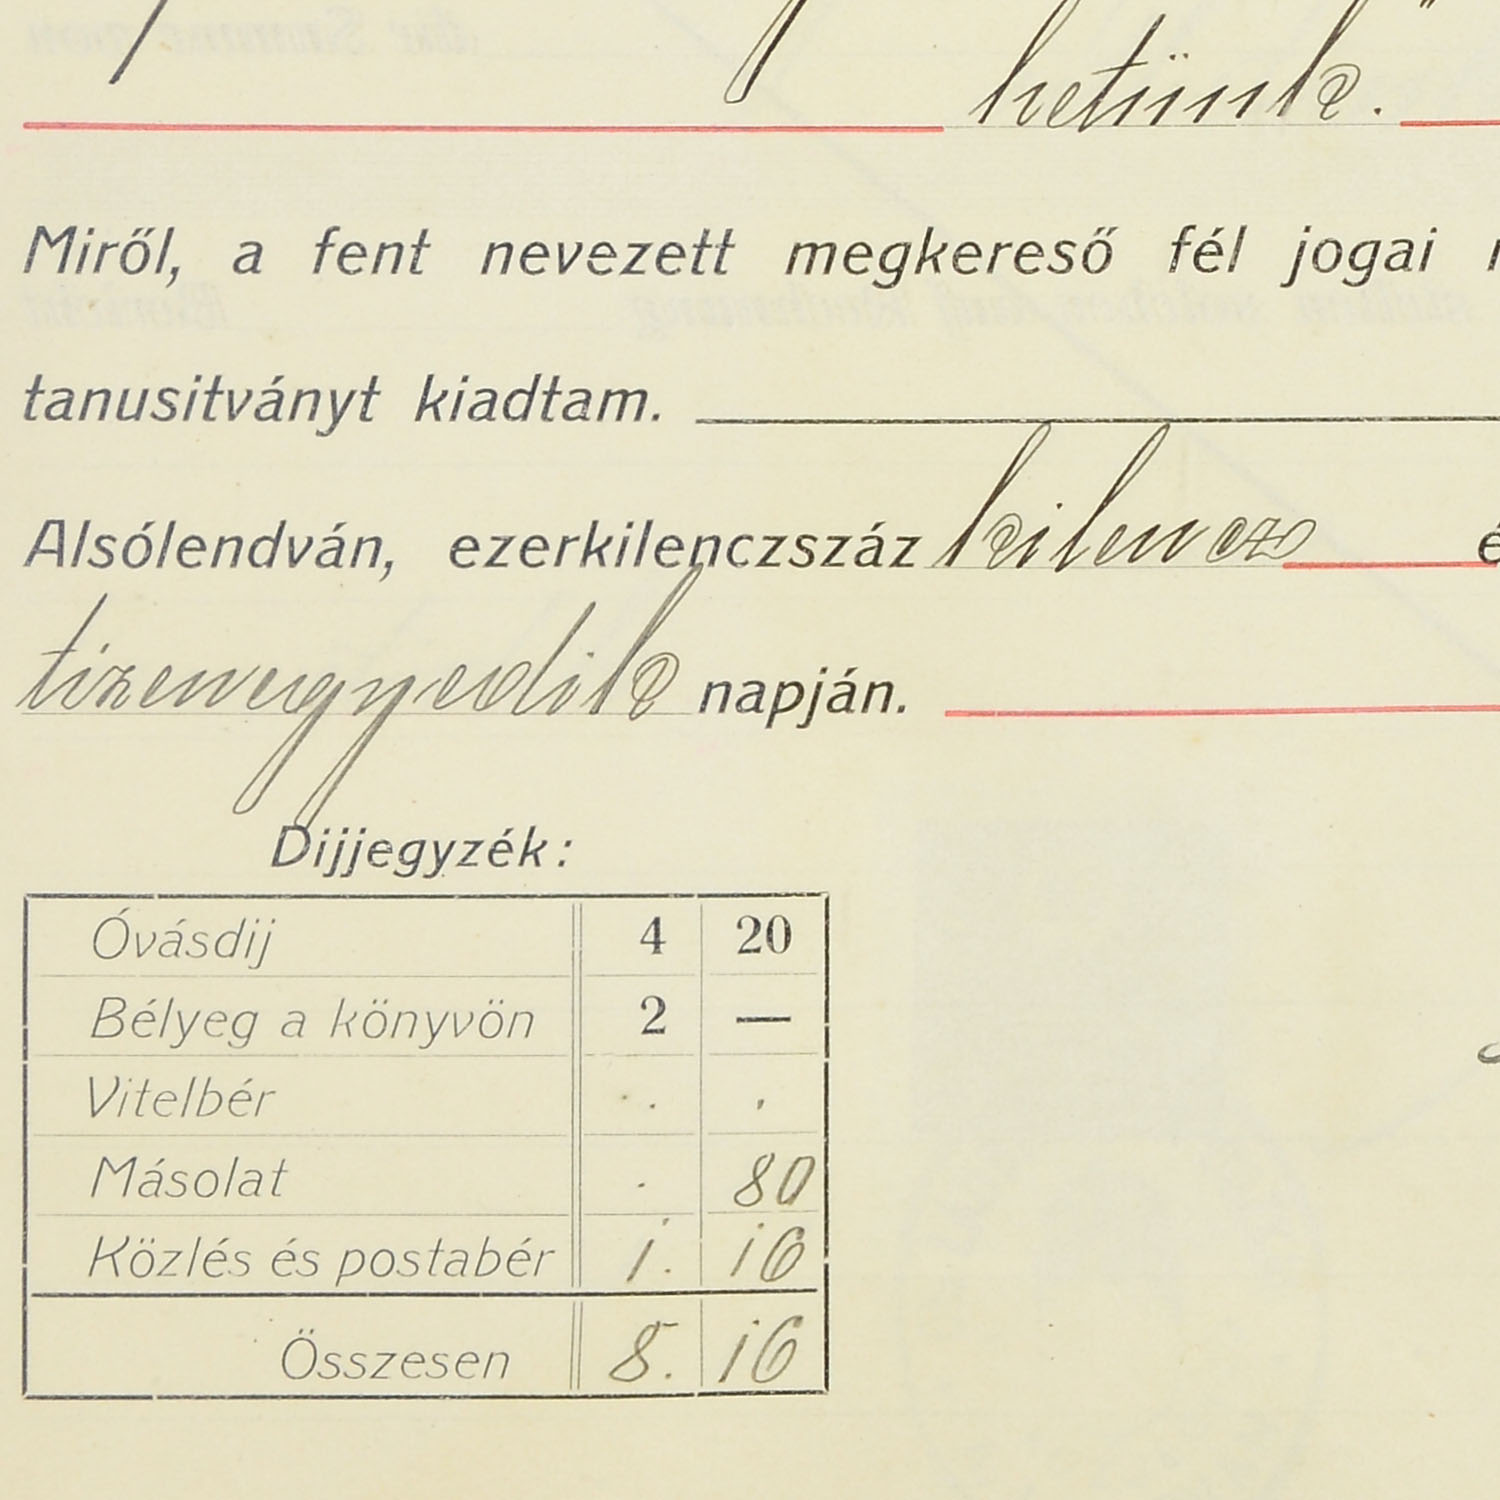 hetünk.
Miről, a fent nevezett megkereső fél jogai
tanusitványt kiadtam.
Alsólendván, ezerkilenczszáz kilencz
tizenegyedik napján.
Dijjegyzék:
Óvásdij 4 20
Bélyeg a könyvön 2 —
Vitelbér . .
Másolat . 80
Közlés és postabér 1. 16
Összesen 8. 16